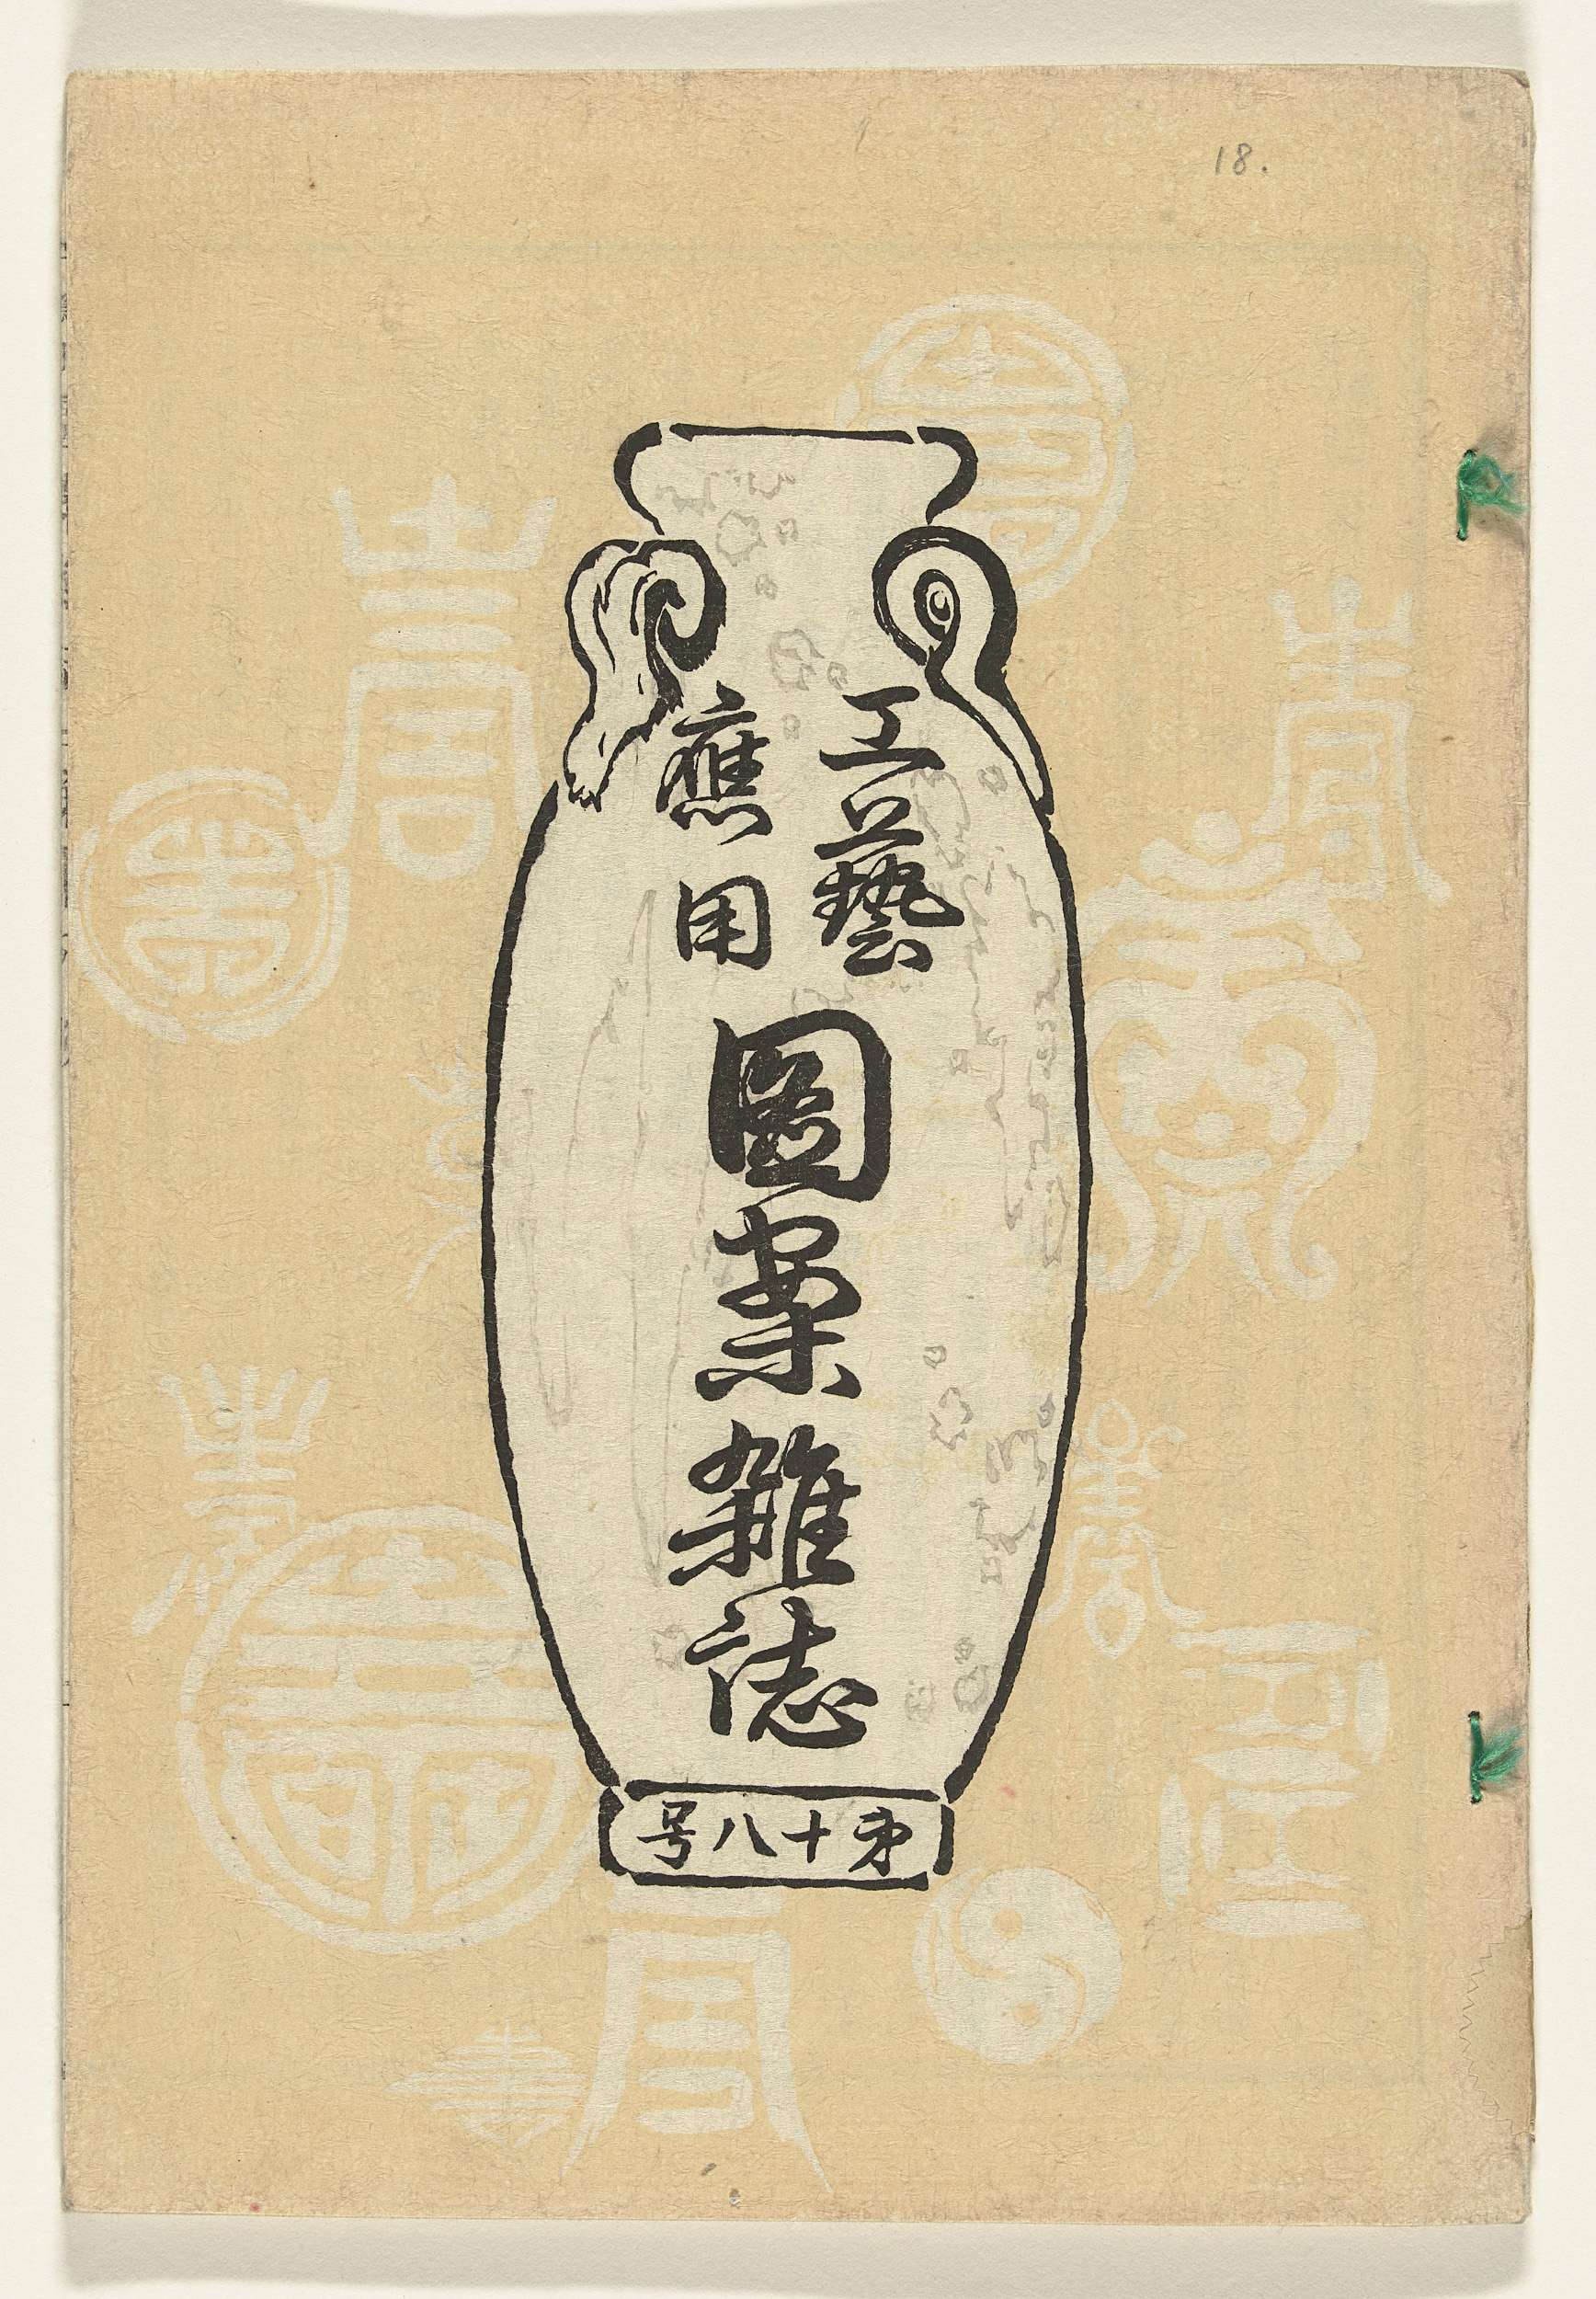 18.
工藝
應用
圖案雜誌
号八十第